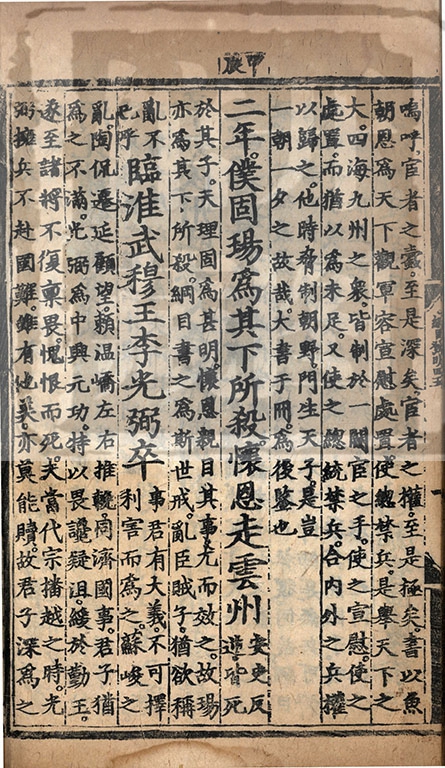 嗚呼宦者之蠹至是深矣宦者之權至是極矣書以魚
朝恩為天下觀軍容宣慰處置使緫禁兵是舉天下之
大四海九州之衆皆制於一閹宦之手使之宣慰使之
處置而猶以為未足又使之總統禁兵合內外之兵權
以歸之他時脅制朝野門生天子是豈
一朝一夕之故哉大書于冊為後鑒也
二年僕固瑒為其下所殺懷恩走雲州
安史反
逆皆死
於其子天理固為甚明懷恩親目其事尤而效之故瑒
亦為其下所殺綱目書之為斯世戒亂臣賊子猶欲稱
亂不
已乎
臨淮武穆王李光弼卒
事君有大義不可擇
利害而為之蘇峻之
亂陶侃遷延顧望賴温嶠左右推輓同濟國事君子猶
為之不滿光弼為中興元功特以畏讒疑沮緩於勤王
遂至諸將不復稟畏愧恨而死夫當代宗播越之時光
弼擁兵不赴國難雖有他美亦莫能贖故君子深為之